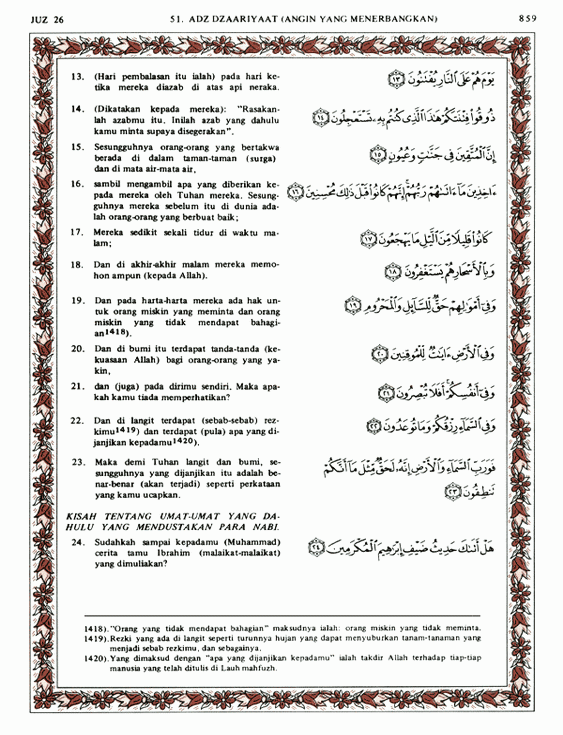 JUZ 26 51. ADZ DZAARIYAAT (ANGIN YANG MENERBANGKAN) 859
13. (Hari pembalasan itu ialah) pada hari ke-
tika mereka diazab di atas api neraka.
يَوْمَ هُمْ عَلَى ٱلنَّارِ يُفْتَنُونَ ﴿١٣﴾
14. (Dikatakan kepada mereka): "Rasakan-
lah azabmu itu. Inilah azab yang dahulu
kamu minta supaya disegerakan".
ذُوقُوا۟ فِتْنَتَكُمْ هَٰذَا ٱلَّذِى كُنتُم بِهِۦ تَسْتَعْجِلُونَ ﴿١٤﴾
15. Sesungguhnya orang-orang yang bertakwa
berada di dalam taman-taman (surga)
dan di mata air-mata air,
إِنَّ ٱلْمُتَّقِينَ فِى جَنَّٰتٍ وَعُيُونٍ ﴿١٥﴾
16. sambil mengambil apa yang diberikan ke-
pada mereka oleh Tuhan mereka. Sesung-
guhnya mereka sebelum itu di dunia ada-
lah orang-orang yang berbuat baik;
ءَاخِذِينَ مَآ ءَاتَىٰهُمْ رَبُّهُمْ إِنَّهُمْ كَانُوا۟ قَبْلَ ذَٰلِكَ مُحْسِنِينَ ﴿١٦﴾
17. Mereka sedikit sekali tidur di waktu ma-
lam;
كَانُوا۟ قَلِيلًا مِّنَ ٱلَّيْلِ مَا يَهْجَعُونَ ﴿١٧﴾
18. Dan di akhir-akhir malam mereka memo-
hon ampun (kepada Allah).
وَبِٱلْأَسْحَارِ هُمْ يَسْتَغْفِرُونَ ﴿١٨﴾
19. Dan pada harta-harta mereka ada hak un-
tuk orang miskin yang meminta dan orang
miskin yang tidak mendapat bahagi-
an1418).
وَفِىٓ أَمْوَٰلِهِمْ حَقٌّ لِّلسَّآئِلِ وَٱلْمَحْرُومِ ﴿١٩﴾
20. Dan di bumi itu terdapat tanda-tanda (ke-
kuasaan Allah) bagi orang-orang yang ya-
kin,
وَفِى ٱلْأَرْضِ ءَايَٰتٌ لِّلْمُوقِنِينَ ﴿٢٠﴾
21. dan (juga) pada dirimu sendiri. Maka apa-
kah kamu tiada memperhatikan?
وَفِىٓ أَنفُسِكُمْ أَفَلَا تُبْصِرُونَ ﴿٢١﴾
22. Dan di langit terdapat (sebab-sebab) rez-
kimu1419) dan terdapat (pula) apa yang di-
janjikan kepadamu1420).
وَفِى ٱلسَّمَآءِ رِزْقُكُمْ وَمَا تُوعَدُونَ ﴿٢٢﴾
23. Maka demi Tuhan langit dan bumi, se-
sungguhnya yang dijanjikan itu adalah be-
nar-benar (akan terjadi) seperti perkataan
yang kamu ucapkan.
فَوَرَبِّ ٱلسَّمَآءِ وَٱلْأَرْضِ إِنَّهُۥ لَحَقٌّ مِّثْلَ مَآ أَنَّكُمْ
تَنطِقُونَ ﴿٢٣﴾
KISAH TENTANG UMAT-UMAT YANG DA-
HULU YANG MENDUSTAKAN PARA NABI.
24. Sudahkah sampai kepadamu (Muhammad)
cerita tamu Ibrahim (malaikat-malaikat)
yang dimuliakan?
هَلْ أَتَىٰكَ حَدِيثُ ضَيْفِ إِبْرَٰهِيمَ ٱلْمُكْرَمِينَ ﴿٢٤﴾
1418)."Orang yang tidak mendapat bahagian" maksudnya ialah: orang miskin yang tidak meminta.
1419).Rezki yang ada di langit seperti turunnya hujan yang dapat menyuburkan tanam-tanaman yang
menjadi sebab rezkimu, dan sebagainya.
1420).Yang dimaksud dengan "apa yang dijanjikan kepadamu" ialah takdir Allah terhadap tiap-tiap
manusia yang telah ditulis di Lauh mahfuzh.